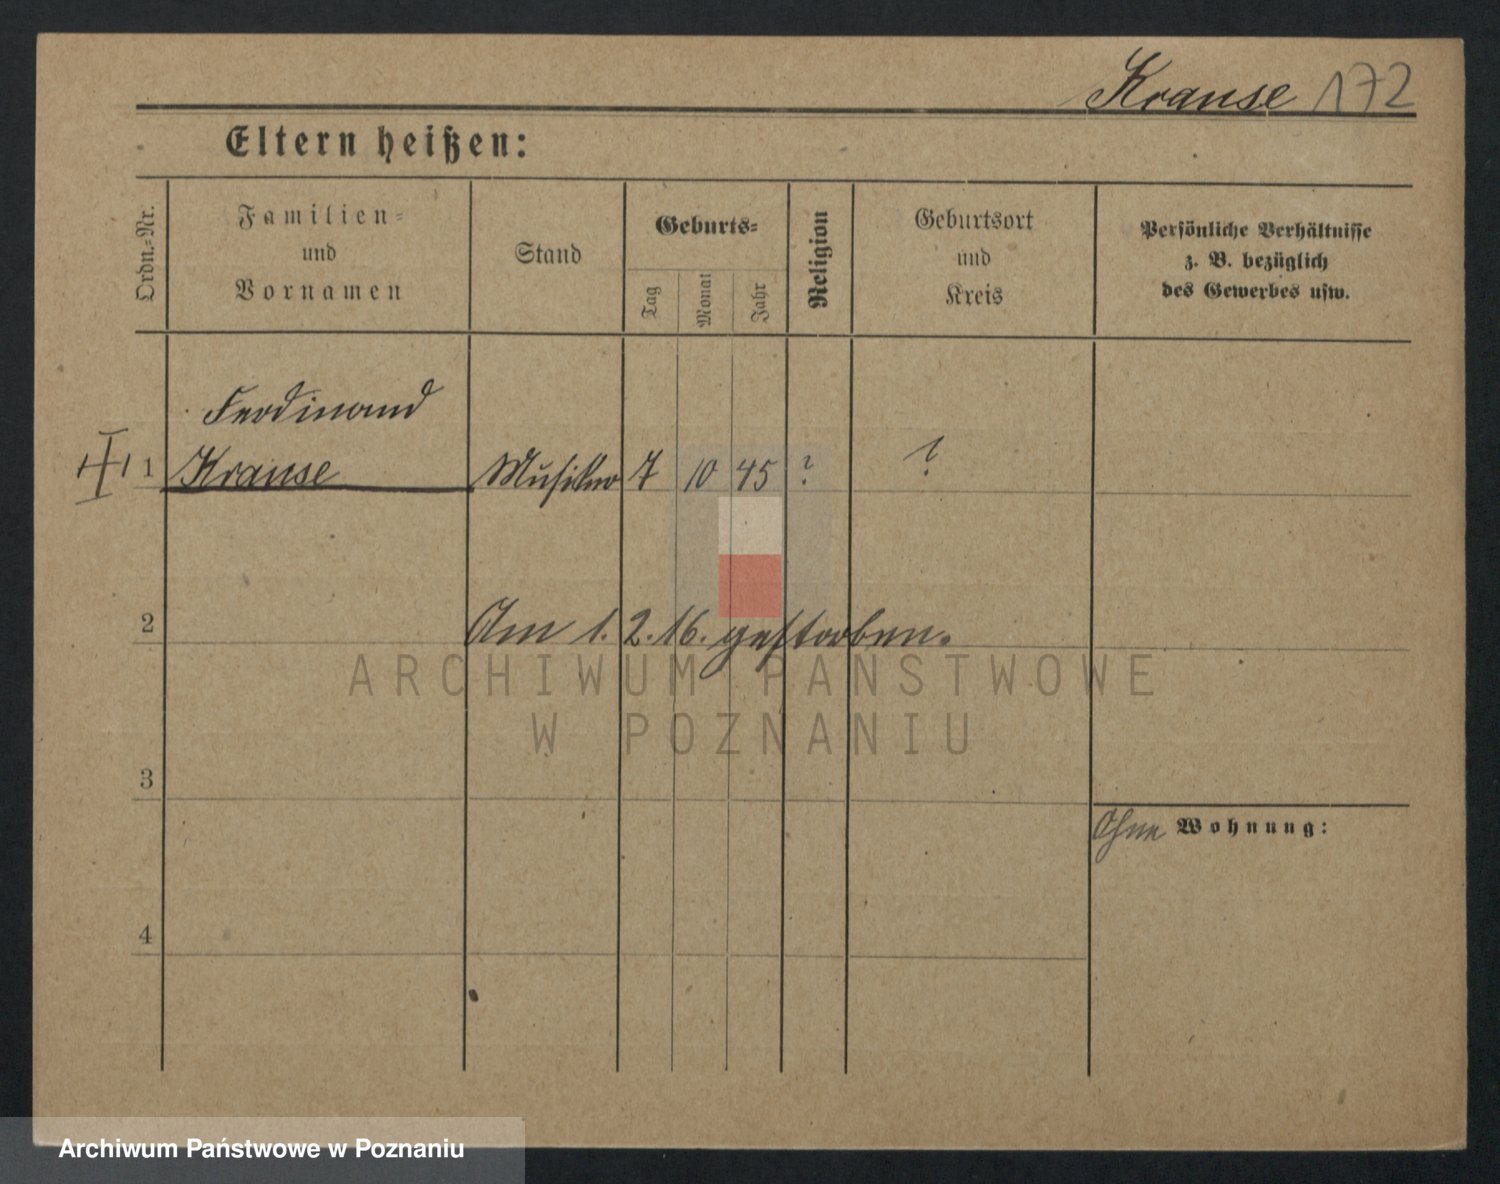 Krause 172
Eltern heißen:
Ordn.-Nr.
Familien-
und
Vornamen
Stand
Geburts-
Tag
Monat
Jahr
Religion
Geburtsort
und
Kreis
Persönliche Verhältnisse
z. B. bezüglich
des Gewerbes usw.
Ferdinand
1 Krause Musiker 7 10 45 ? ?
2 Am 1. 2. 16. gestorben.
ARCHIWUM PAŃSTWOWE
W POZNANIU
3
Ohne Wohnung:
4
Archiwum Państwowe w Poznaniu